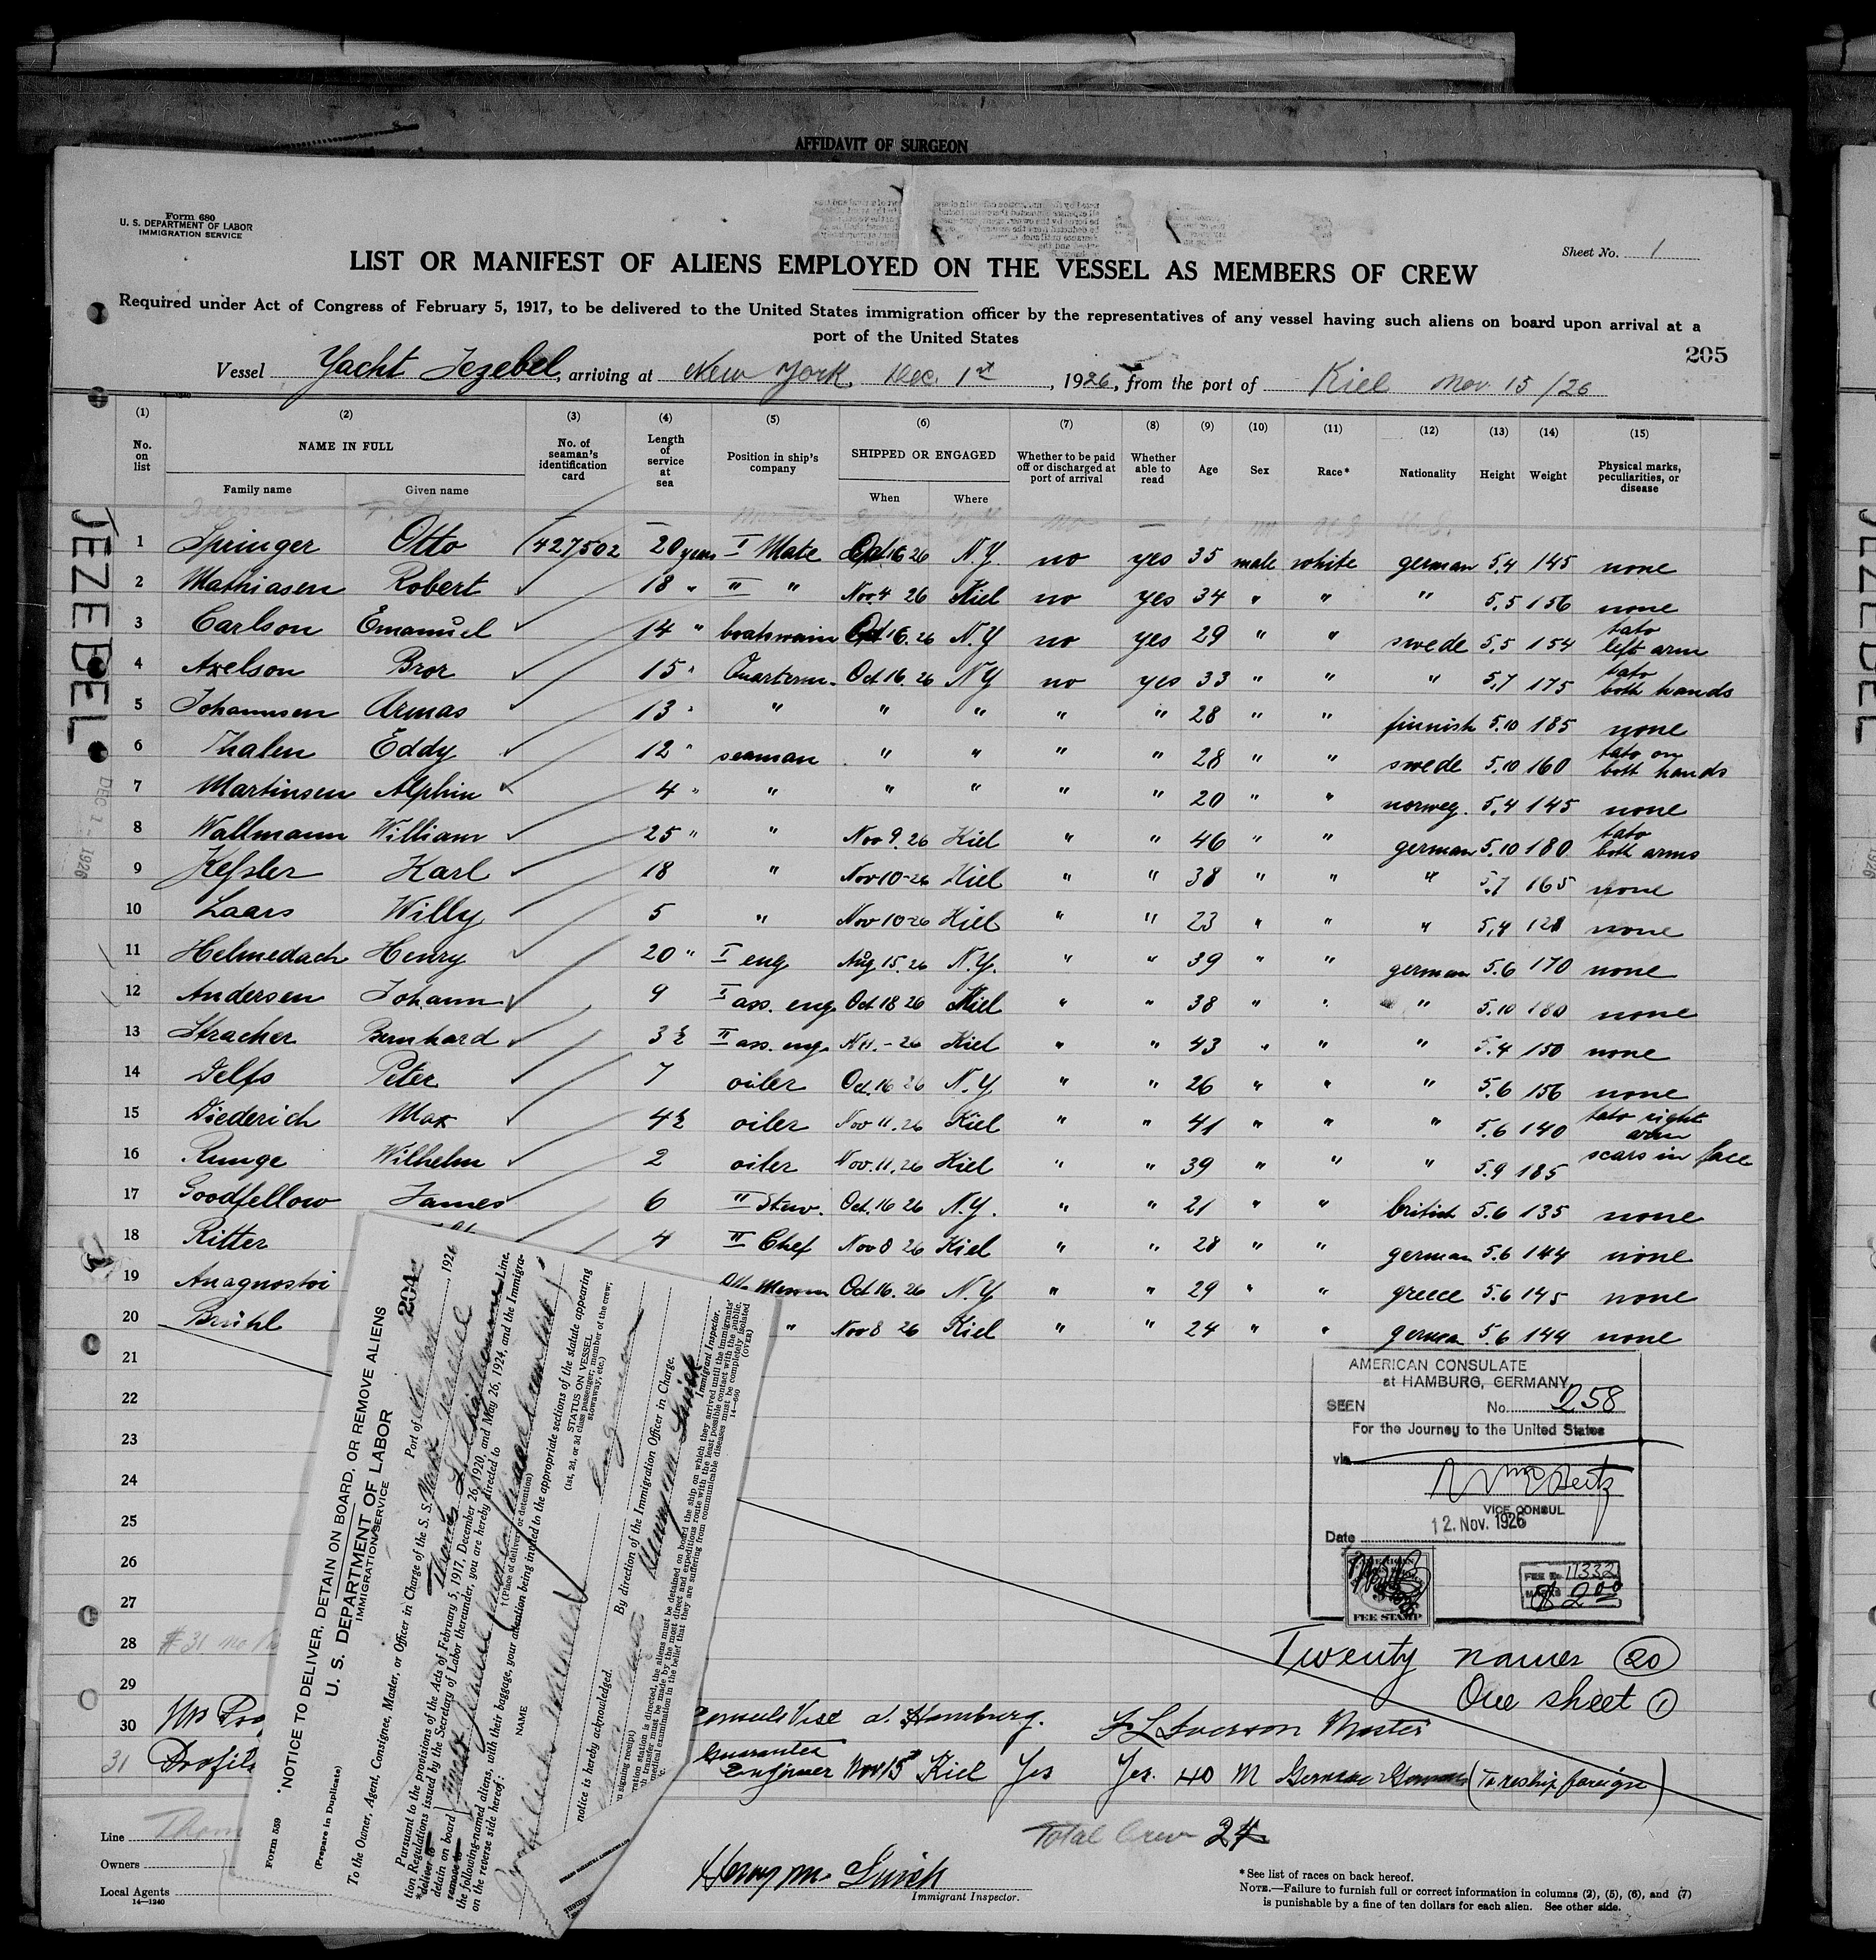 AFFIDAVIT OF SURGEON
Form 680
U. S. DEPARTMENT OF LABOR
IMMIGRATION SERVICE
Sheet No. 1
LIST OR MANIFEST OF ALIENS EMPLOYED ON THE VESSEL AS MEMBERS OF CREW
Required under Act of Congress of February 5, 1917, to be delivered to the United States immigration officer by the representatives of any vessel having such aliens on board upon arrival at a
port of the United States
205
Vessel Yacht Jezebel, arriving at New York, Dec. 1st, 1926, from the port of Kiel Nov. 15/26
(1) (2) (3) (4) (5) (6) (7) (8) (9) (10) (11) (12) (13) (14) (15)
No. on list NAME IN FULL No. of seaman's identification card Length of service at sea Position in ship's company SHIPPED OR ENGAGED Whether to be paid off or discharged at port of arrival Whether able to read Age Sex Race* Nationality Height Weight Physical marks, peculiarities, or disease
Family name Given name When Where
JEZEBEL
DEC 1 - 1926
1 Springer Otto 427502 20 years I Mate Oct 16 26 N.Y. no yes 35 male white german 5,4 145 none
2 Mathiasen Robert 18 " II " Nov. 4 26 Kiel no yes 34 " " " 5,5 156 none
3 Carlson Emanuel 14 " boatswain Oct 16. 26 N.Y no yes 29 " " swede 5,5 154 tato left arm
4 Axelson Bror 15 " Quarterm. Oct 16. 26 NY no yes 33 " " " 5,7 175 tato both hands
5 Johannsen Armas 13 " " " " " " 28 " " finnish 5.10 185 none
6 Thalen Eddy 12 " seaman " " " " 28 " " swede 5,10 160 tato on both hands
7 Martinsen Alphin 4 " " " " " " 20 " " norweg. 5,4 145 none
8 Wallmann William 25 " " Nov 9. 26 Kiel " " 46 " " german 5,10 180 tato both arms
9 Keßler Karl 18 " Nov 10-26 Kiel " " 38 " " " 5,7 165 none
10 Laars Willy 5 " Nov 10-26 Kiel " " 23 " " " 5,4 128 none
11 Helmedach Henry 20 " I eng Aug 15. 26 N.Y. " " 39 " " german 5.6 170 none
12 Andersen Johann 9 I ass. eng Oct 18 26 Kiel " " 38 " " " 5,10 180 none
13 Stracher Bernhard 3½ II ass. eng. N 11.-26 Kiel " " 43 " " " 5.4 150 none
14 Delfs Peter 7 oiler Oct. 16 26 N.Y " " 26 " " " 5.6 156 none
15 Diederich Max 4½ oiler Nov 11. 26 Kiel " " 41 " " " 5.6 140 tato right arm
16 Runge Wilhelm 2 oiler Nov. 11. 26 Kiel " " 39 " " " 5.9 185 scars in face
17 Goodfellow James 6 II Stew. Oct. 16 26 N.Y. " " 21 " " british 5.6 135 none
18 Ritter 4 II Chef Nov 8 26 Kiel " " 28 " " german 5.6 144 none
19 Anagnostoi Messm Oct 16. 26 N.Y " " 29 " " greece 5.6 145 none
20 Brühl " Nov 8 26 Kiel " " 24 " " german 5.6 144 none
21
22
23
24
25
26
27
28
29
30
31
AMERICAN CONSULATE
at HAMBURG, GERMANY
SEEN No. 258
For the Journey to the United States
via
VICE CONSUL
Date 12. Nov. 1926
FEE STAMP
FEE No. 11332
$ 2.00
Twenty names (20)
One sheet (1)
Hamburg. Iverson Master
Guarantee Engineer Nov 15 Kiel Yes Yes. 40 M German German (To reship foreign)
Total Crew 24
Immigrant Inspector.
Line
Owners
Local Agents
14—1240
* See list of races on back hereof.
NOTE.—Failure to furnish full or correct information in columns (2), (5), (6), and (7)
is punishable by a fine of ten dollars for each alien. See other side.
Form 559
(Prepare in Duplicate)
NOTICE TO DELIVER, DETAIN ON BOARD, OR REMOVE ALIENS
U. S. DEPARTMENT OF LABOR
IMMIGRATION SERVICE
204
Port of New York, 1926
To the Owner, Agent, Consignee, Master, or Officer in Charge of the S. S. Yacht Jezebel
Line.
Pursuant to the provisions of the Acts of February 5, 1917, December 26, 1920, and May 26, 1924, and the Immigra-
tion Regulations issued by the Secretary of Labor thereunder, you are hereby directed to
*deliver to
detain on board
remove to
†(Place of delivery or detention)
the following-named aliens, with their baggage, your attention being invited to the appropriate sections of the statute appearing
on the reverse side hereof:
NAME
STATUS ON VESSEL
(1st, 2d, or 3d class passenger; member of the crew;
stowaway, etc.)
notice is hereby acknowledged.
By direction of the Immigration Officer in Charge.
Immigrant Inspector.
14—660
(OVER)